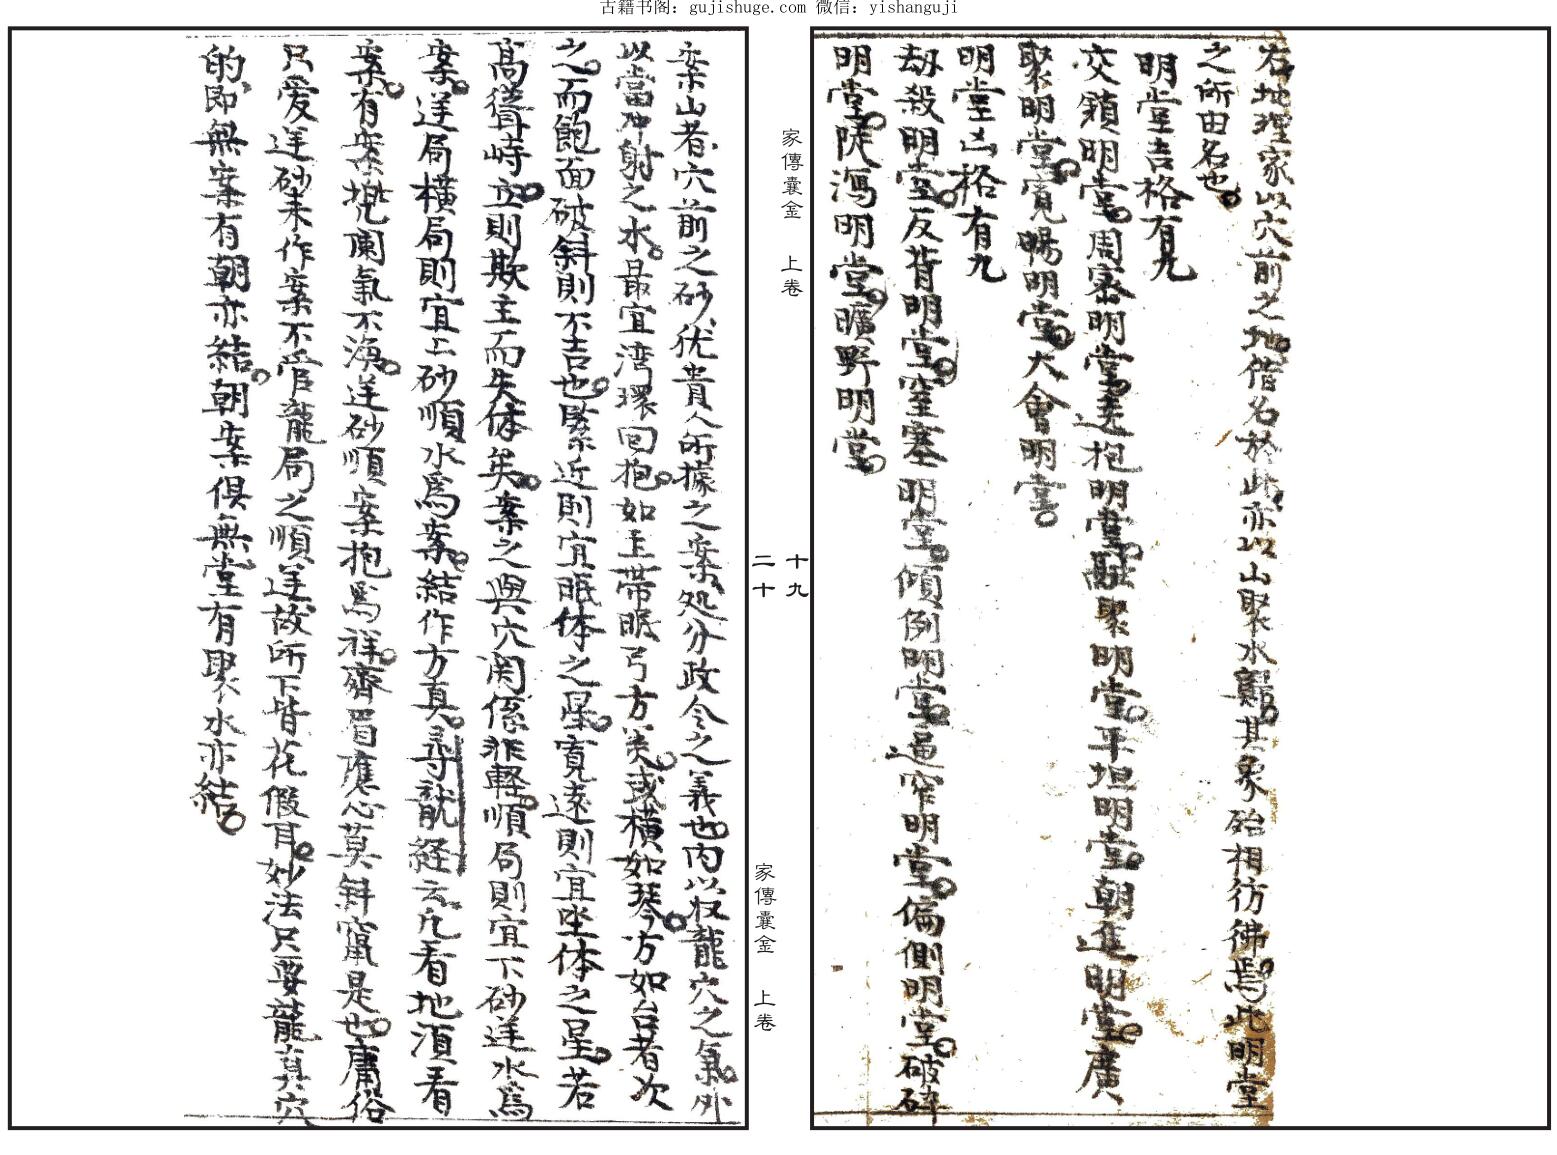 古籍书阁：gujishuge.com 微信：yishanguji
右地理家以穴前之地借名於此亦以山聚水歸其象殆相彷彿焉此明堂
之所由名也
明堂吉格有九
交鎖明堂周密明堂遶抱明堂融聚明堂平坦明堂朝進明堂廣
聚明堂寬暢明堂大會明堂
明堂凶格有九
劫殺明堂反背明堂窒塞明堂傾倒明堂逼窄明堂偏側明堂破碎
明堂陡瀉明堂曠野明堂
家傳囊金 上卷
十九
二十
家傳囊金 上卷
案山者穴前之砂优貴人所據之案処分政令之義也內以收龍穴之氣外
以當冲射之水最宜湾環回抱如玉帶眠弓方美或橫如琴方如台者次
之而飽面破斜則不吉也緊近則宜眠体之星寬遠則宜坐体之星若
高聳峙立則欺主而失体矣案之與穴関係非輕順局則宜下砂逆水為
案逆局橫局則宜上砂順水爲案結作方真尋龍経云凡看地須看
案有案兜闌氣不洩逆砂順案抱爲祥齊眉應心莫斜竄是也庸俗
只爱逆砂来作案不管龍局之順逆故所下皆花假耳妙法只要龍真穴
的即無案有朝亦結朝案俱無堂有聚水亦結